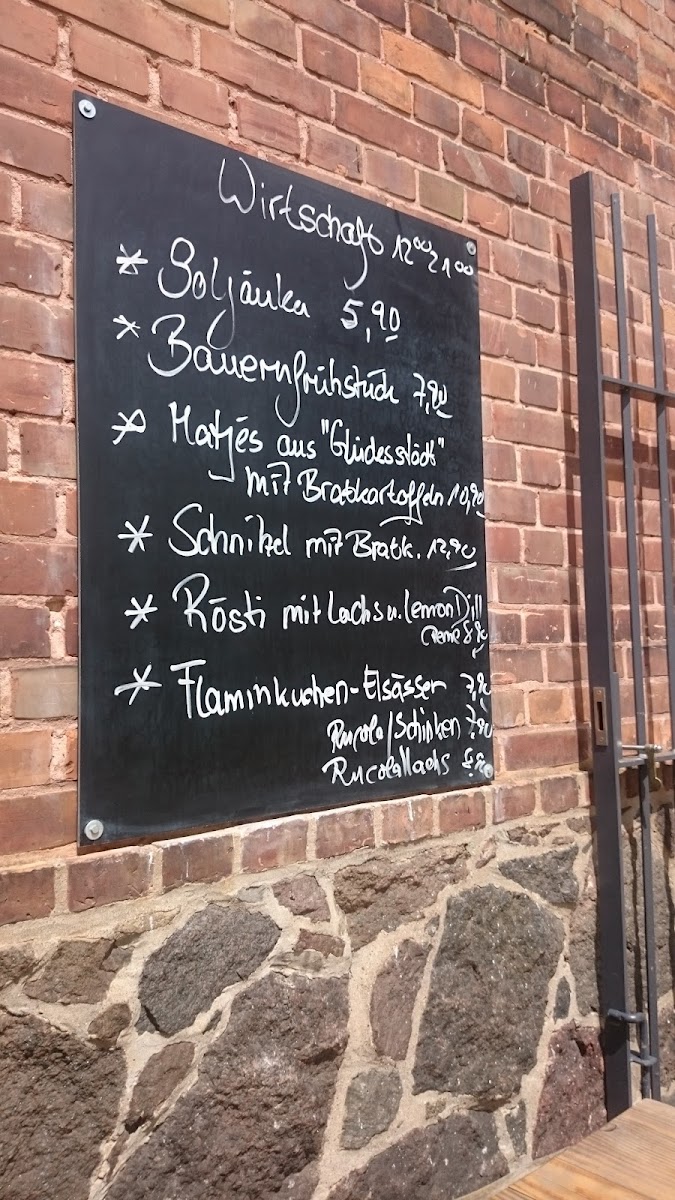 Wirtschaft 12⁰⁰ 21⁰⁰
* Soljänka 5,90
* Bauernfrühstück 7,90
* Matjes aus "Glückesstadt"
mit Bratkartoffeln 10,90
* Schnitzel mit Bratk. 12,90
* Rösti mit Lachs u. lemon Dill
Creme 8,90
* Flaminkuchen-Elsässer 7,90
Rucola/Schinken 7,90
Rucola/lachs 8,90